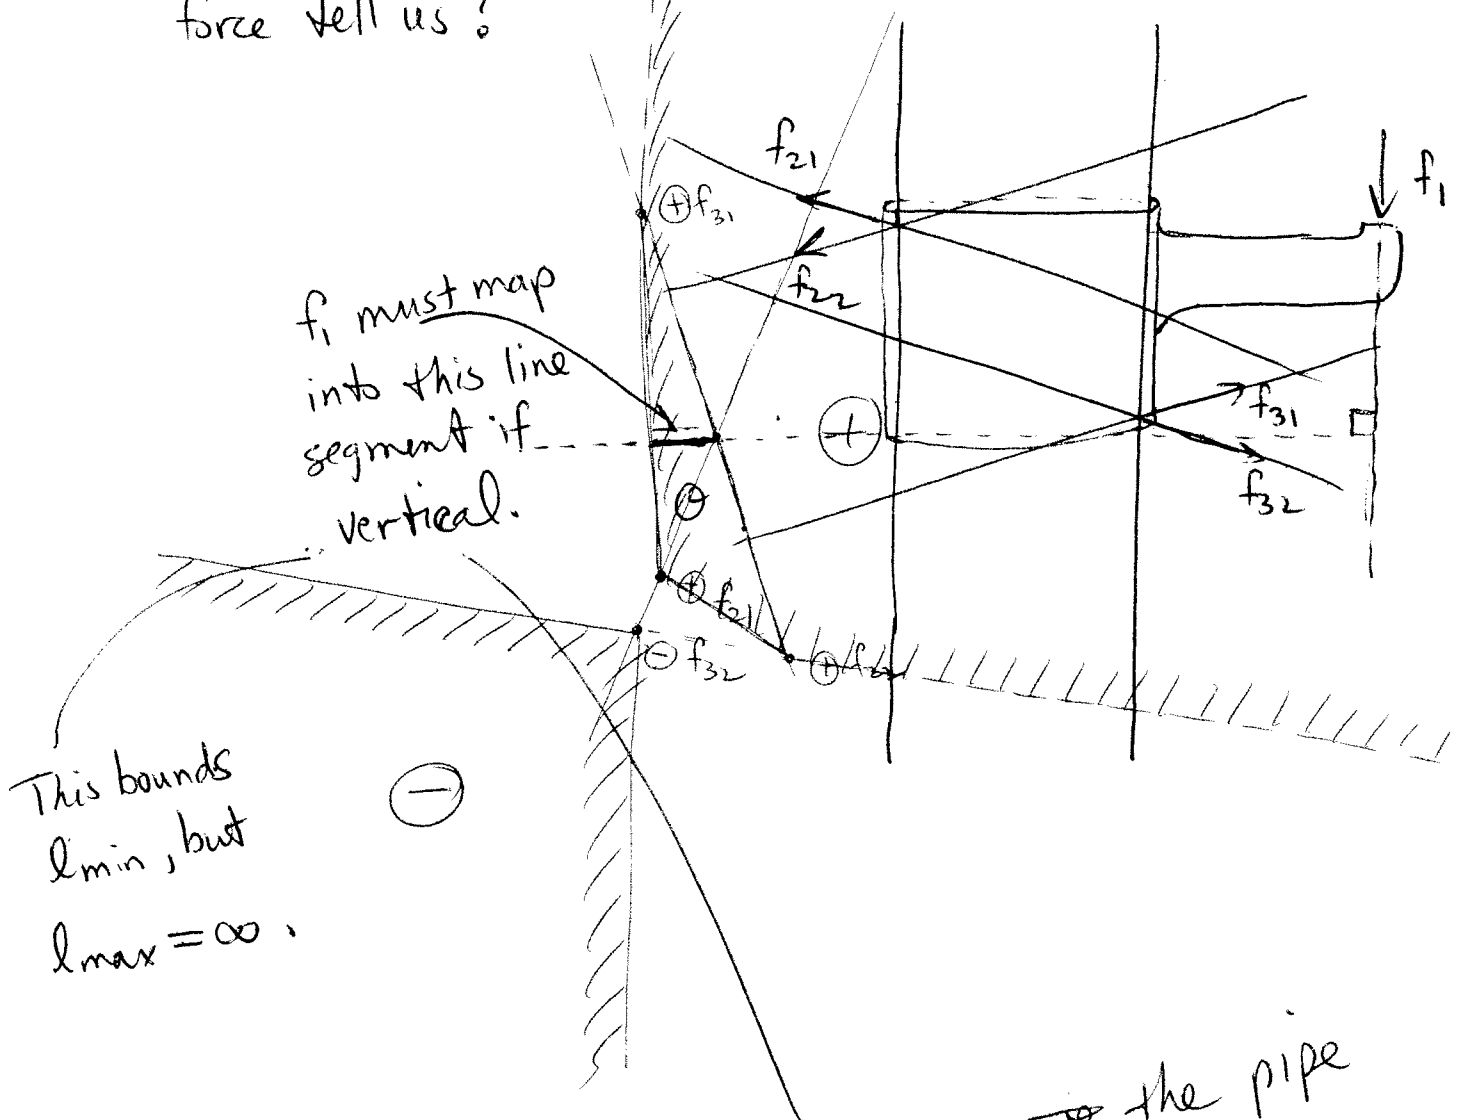 force tell us?
f21
f1
⊕ f31
f22
f1 must map
into this line
segment if
vertical.
+
f31
f32
⊕ f21
⊖ f32
⊕
This bounds
lmin, but
lmax = ∞.
⊖
the pipe